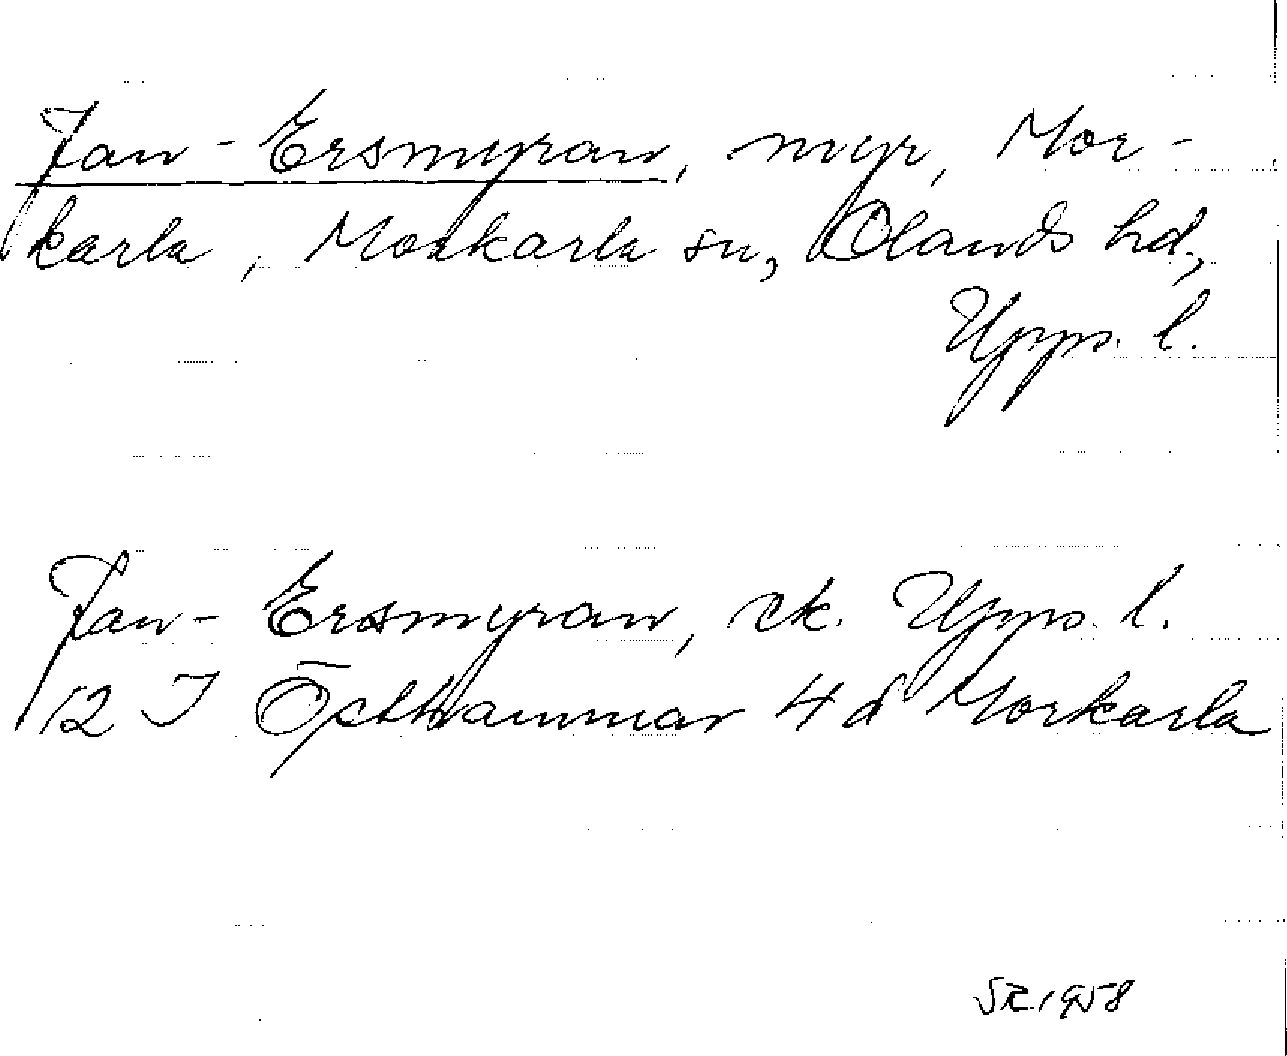 Jan-Ersmyran, myr, Mor-
karla, Morkarla sn, Olands hd,
Upps. l.
Jan-Ersmyran, ek. Upps. l.
12 I Östhammar 4 d Morkarla
SR 1958